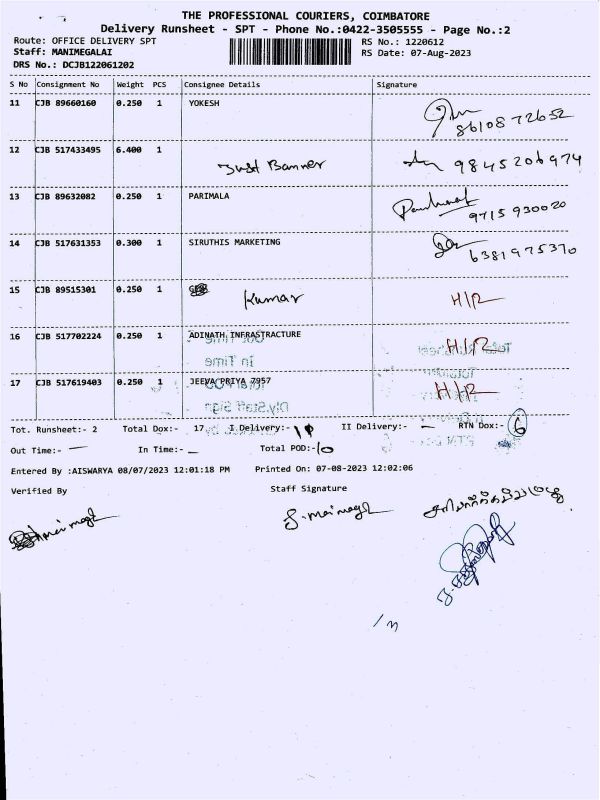 THE PROFESSIONAL COURIERS, COIMBATORE
Delivery Runsheet - SPT - Phone No.:0422-3505555 - Page No.:2
Route: OFFICE DELIVERY SPT
RS No.: 1220612
Staff: MANIMEGALAI
RS Date: 07-Aug-2023
DRS No.: DCJB122061202
S No Consignment No Weight PCS Consignee Details Signature
11 CJB 89660160 0.250 1 YOKESH
8610872652
12 CJB 517433495 6.400 1
Just Banner 9845206974
13 CJB 89632082 0.250 1 PARIMALA
9715930020
14 CJB 517631353 0.300 1 SIRUTHIS MARKETING
6381975370
15 CJB 89515301 0.250 1
Kumar H/R
16 CJB 517702224 0.250 1 ADINATH INFRASTRACTURE H/R
In Time
17 CJB 517619403 0.250 1 JEEVA PRIYA 7957 H/R
Dly.Staff Sign
Tot. Runsheet:- 2 Total Dox:- 17 I Delivery:- II Delivery:- — RTN Dox:- 6
Out Time:- — In Time:- — Total POD:- 10
Entered By :AISWARYA 08/07/2023 12:01:18 PM Printed On: 07-08-2023 12:02:06
Verified By Staff Signature